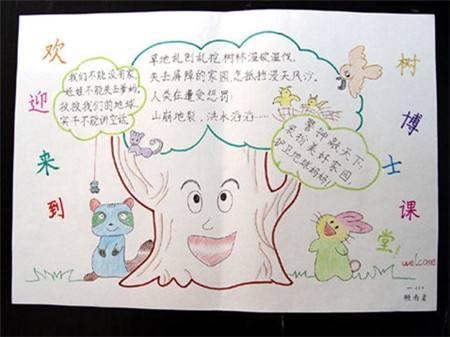 欢
迎
来
到
我们不能没有家,
娃娃不能失去爹妈,
救救我们的地球,
实干不能讲空话。
草地乱刨乱挖,树林滥砍滥伐,
失去屏障的家园,怎抵挡漫天风沙。
人类在遭受惩罚:
山崩地裂、洪水滔滔……
警钟敲天下:
美好家园,
护卫地球妈妈!
树
博
士
课
堂!
welcome